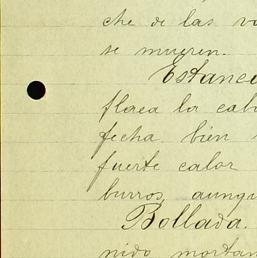 che de las va
se mueren.
Estanci
flaca la cab
fecha bien
fuerte calor
burros, aunqu
Bollada.
nido mortan